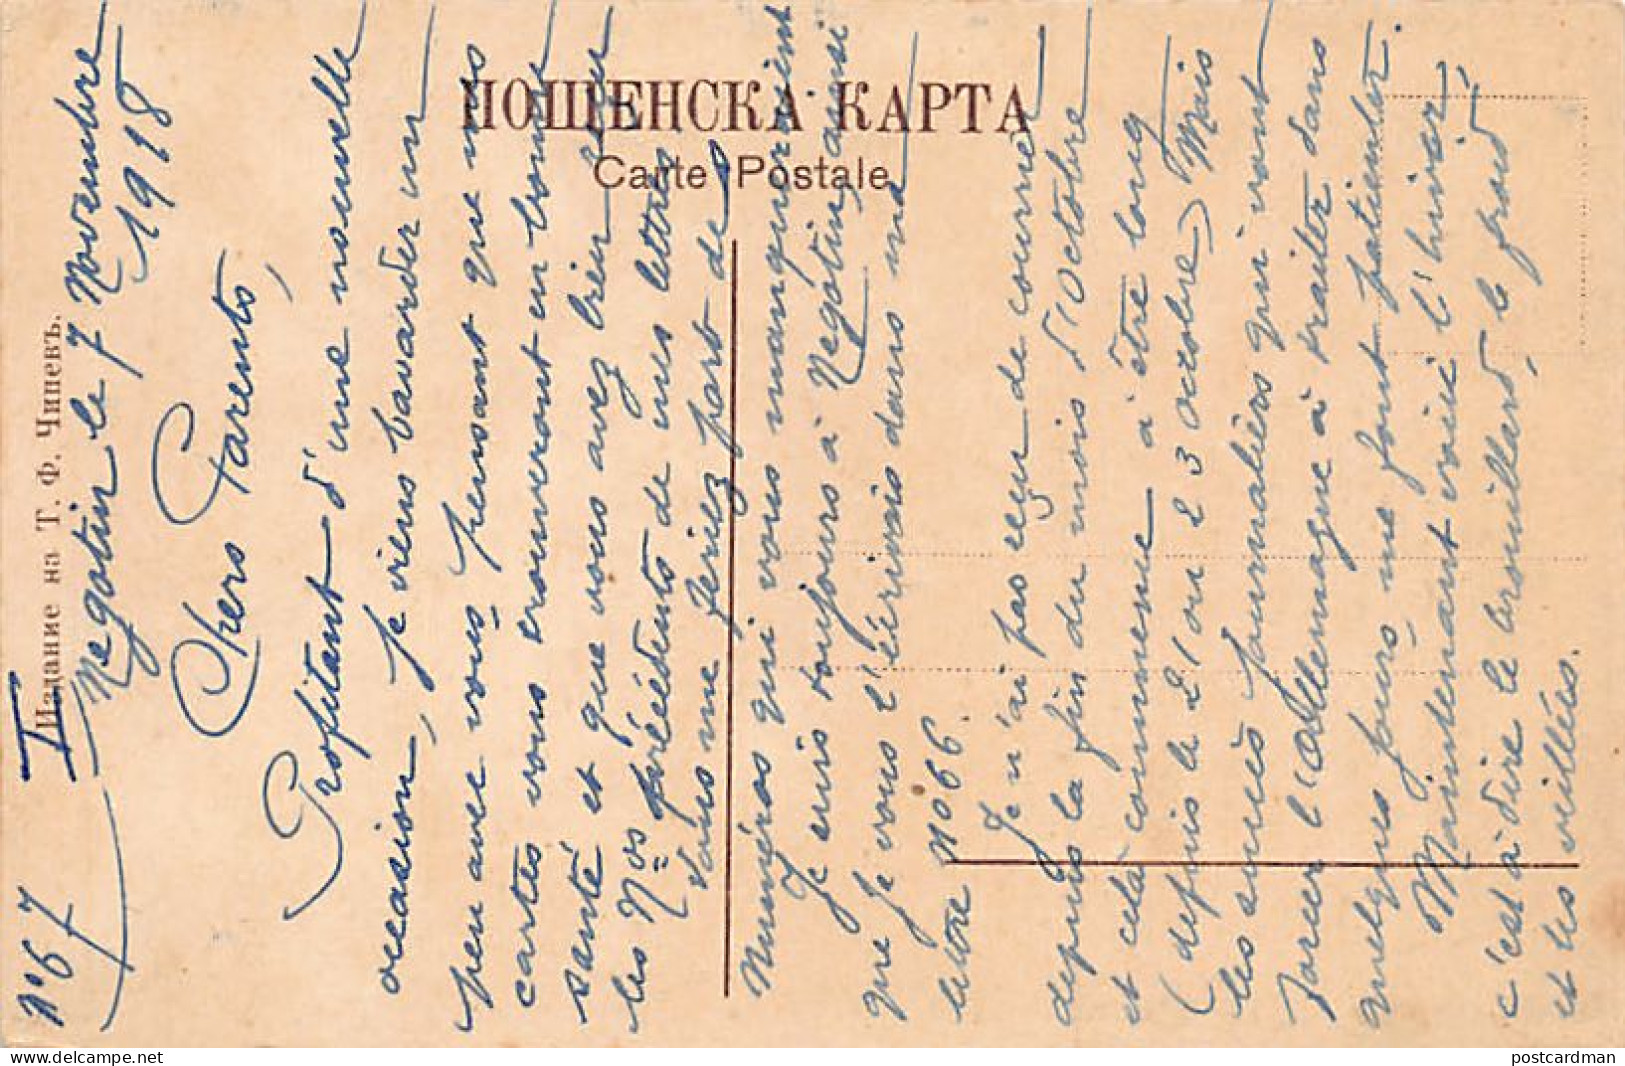 ПОЩЕНСКА КАРТА
Carte Postale
Издание на Т. Ф. Чипевъ.
N° 67 II
Negotin le 7 Novembre
1918
Chers Parents,
Profitant d'une nouvelle
occasion, je viens bavarder un
peu avec vous pensant que mes
cartes vous trouveront en bonne
santé et que vous avez bien reçu
les Nos précédents de mes lettres
Vous me feriez part des
Numéros qui vous manqueraient
Je suis toujours à Negotin, ainsi
que je vous l'écrivais dans ma
lettre N° 66.
Je n'ai pas reçu de courrier
depuis la fin du mois d'Octobre
et cela commence à être long
(depuis le 21 ou 23 octobre) Mais
les armées journalières qui vont
forcer l'Allemagne à traiter dans
quelques jours me font patienter.
Maintenant voici l'hiver,
c'est à dire le brouillard, le froid,
et les veillées.
postcardman